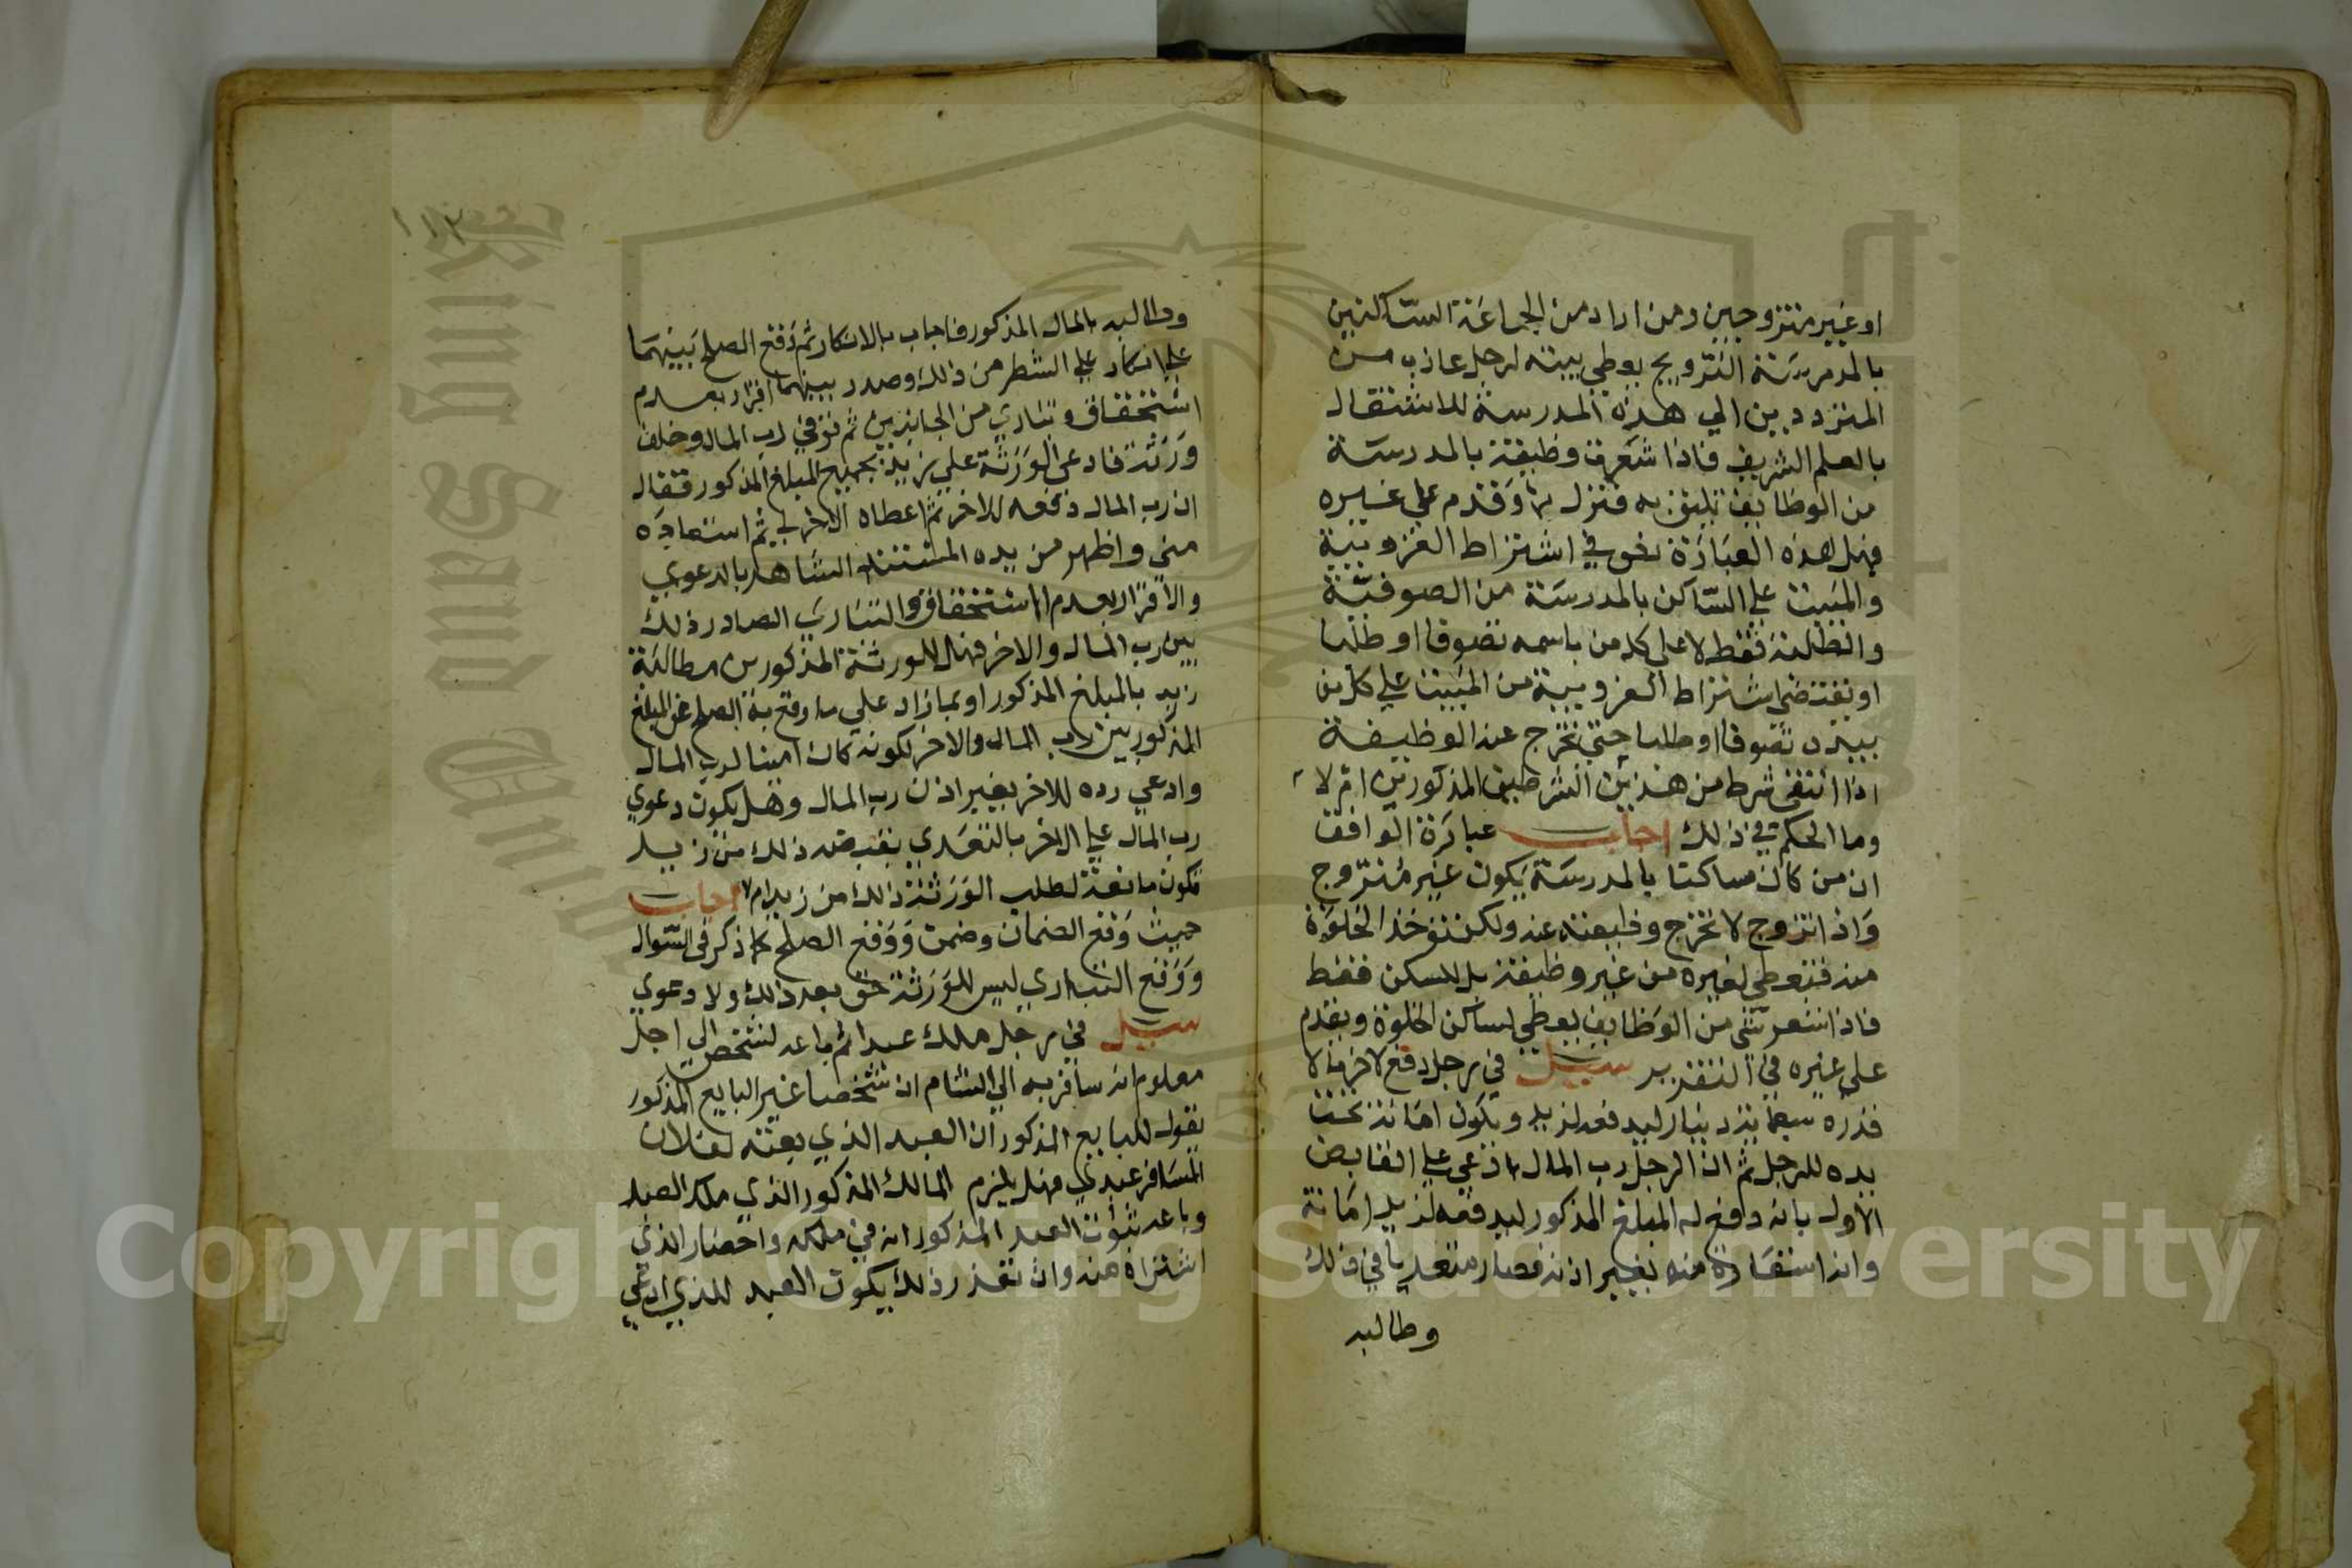 او غير متزوجين ومن اراد من الجماعة الساكنين
بالمدرسة التزويج يعطي بيته لرجل عازب من
المترددين الي هذه المدرسة للاشتغال
بالعلم الشريف فاذا شغرت وظيفة بالمدرسة
من الوظايف تليق به فتنزل بها وقدم على غيره
فهل هذه العبارة نص في اشتراط العزوبية
والمبيت علي الساكن بالمدرسة من الصوفية
والطلبة فقط لا على كل من باسمه تصوفا او طلبا
او يقتضي اشتراط العزوبية من المبيت علي كل من
بيده تصوفا او طلبا حتي تخرج عنه الوظيفة
اذا انتفى شرط من هذين الشرطين المذكورين ام لا
وما الحكم في ذلك اجاب عبارة الواقف
ان من كان ساكنا بالمدرسة يكون غير متزوج
واذا تزوج لا تخرج وظيفته عنه ولكن تؤخذ الخلوة
منه فتعطي لغيره من غير وظيفة بل للسكن فقط
فاذا شغر شي من الوظايف يعطي لساكن الخلوة ويقدم
على غيره في التقرير سيل في رجل دفع لاخر مالا
قدره سبعماية دينار ليدفعه لزيد ويكون امانة تحت
يده للرجل ثم ان الرجل رب المال ادعي علي القابض
الاول بانه دفع له المبلغ المذكور ليدفعه لزيد امانة
وانه استعاده منه بغير اذنه فصار متعديا في ذلك
وطالبه
١١٢
وطالبه بالمال المذكور فاجاب بالانكار ثم وقع الصلح بينهما
علي انكار علي الشطر من ذلك وصدر بينهما اقرار بعدم
استحقاق وتباري من الجانبين ثم توفي رب المال وخلف
ورثة فادعي الورثة علي زيد بجميع المبلغ المذكور فقال
ان رب المال دفعه للاخر ثم اعطاه الاخر لي ثم استعاده
مني واظهر من يده المستند الشاهد بالدعوي
والاقرار بعدم الاستحقاق والتباري الصادر ذلك
بين رب المال والاخر فهل للورثة المذكورين مطالبة
زيد بالمبلغ المذكور او بما زاد علي ما وقع به الصلح عن المبلغ
المذكور بين رب المال والاخر لكونه كان امينا لرب المال
وادعي رده للاخر بغير اذن رب المال وهل يكون دعوي
رب المال علي الاخر بالتعدي بقبضه ذلك من زيد
تكون مانعة لطلب الورثة ذلك من زيد ام لا اجاب
حيث وقع الضمان وضمن ووقع الصلح كما ذكر في السوال
ووقع التباري ليس للورثة حق بعد ذلك ولا دعوي
سيل في رجل ملك عبدا ثم باعه لشخص الي اجل
معلوم انه سافر به الي الشام ان شخصا غير البايع المذكور
يقول للبايع المذكور ان العبد الذي بعته لفلان
المسافر عبدي فهل يلزم المالك المذكور الذي ملك العبد
وباعه ثبوت العبد المذكور انه في ملكه واحضار الذي
اشتراه منه وان تعذر ذلك يكون العبد للذي ادعي
Copyright © King Saud University